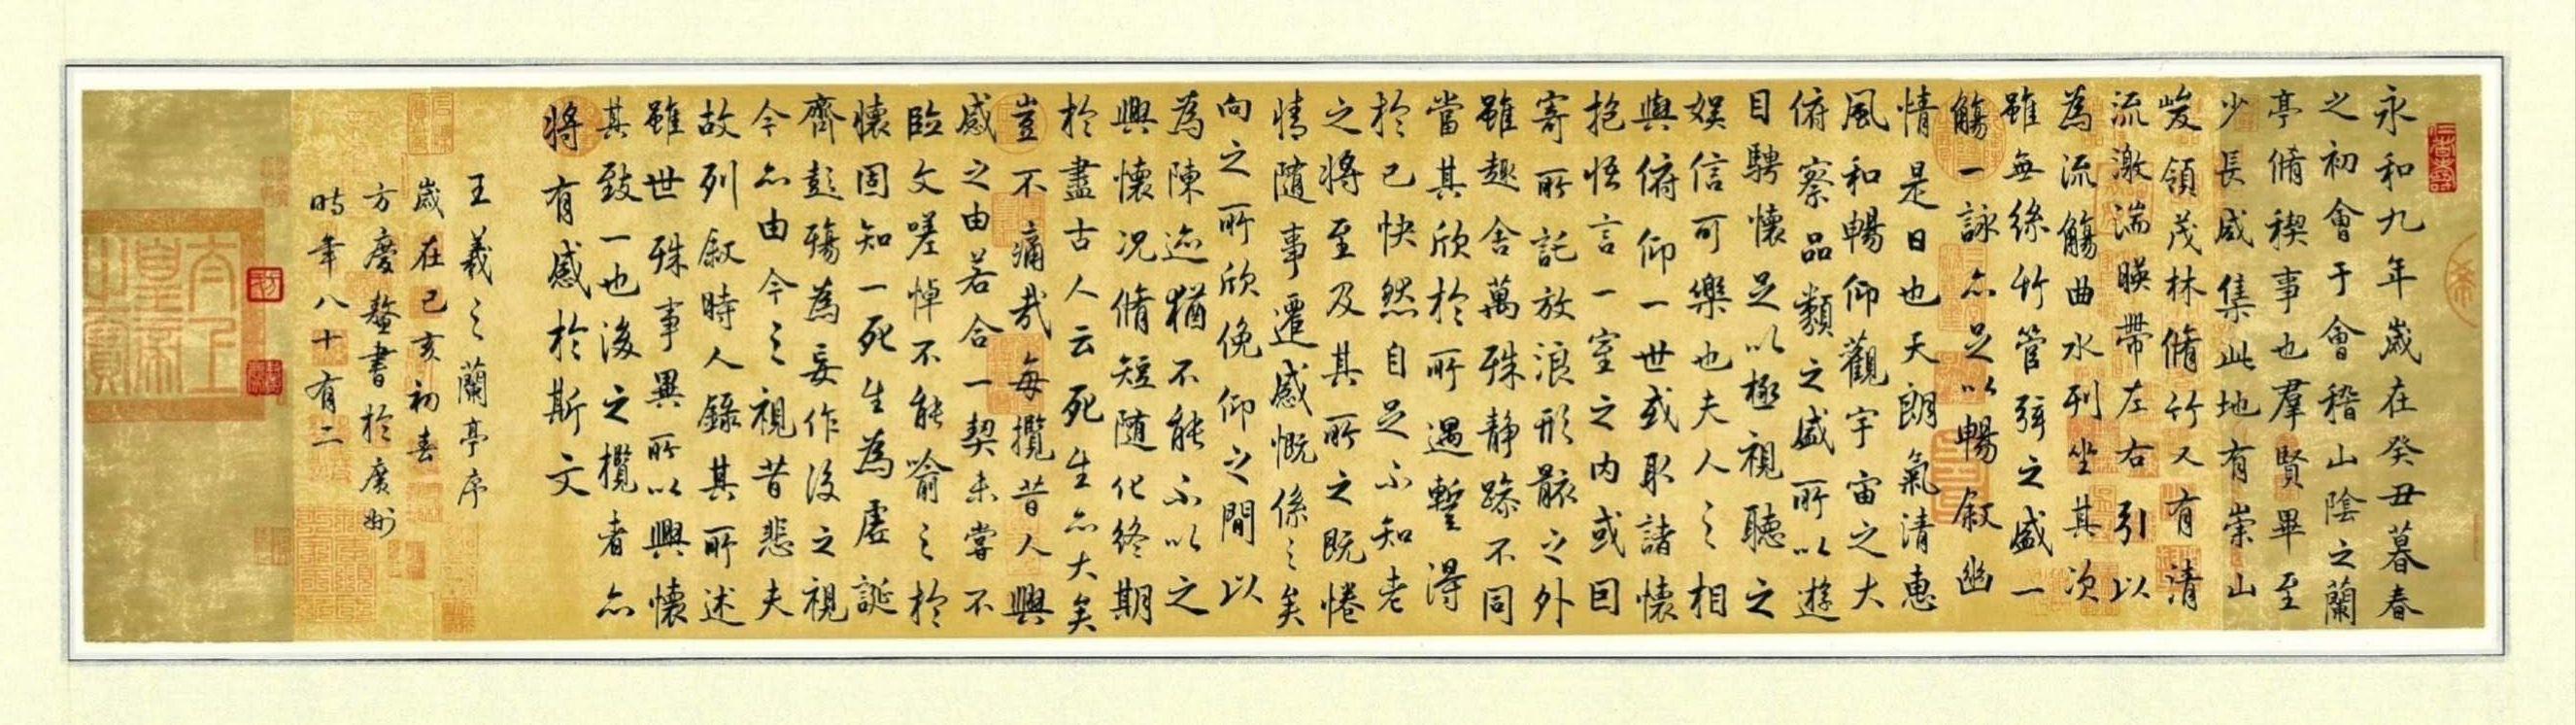 永和九年歲在癸丑暮春
之初會于會稽山陰之蘭
亭脩稧事也羣賢畢至
少長咸集此地有崇山
峻領茂林脩竹又有清
流激湍暎帶左右引以
為流觴曲水列坐其次
雖無絲竹管弦之盛一
觴一詠亦足以暢叙幽
情是日也天朗氣清惠
風和暢仰觀宇宙之大
俯察品類之盛所以遊
目騁懷足以極視聽之
娛信可樂也夫人之相
與俯仰一世或取諸懷
抱悟言一室之內或因
寄所託放浪形骸之外
雖趣舍萬殊静躁不同
當其欣於所遇暫得
於己快然自足不知老
之將至及其所之既惓
情隨事遷感慨係之矣
向之所欣俛仰之間以
為陳迹猶不能不以之
興懷況脩短隨化終期
於盡古人云死生亦大矣
豈不痛哉每攬昔人興
感之由若合一契未嘗不
臨文嗟悼不能喻之於
懷固知一死生為虛誕
齊彭殤為妄作後之視
今亦由今之視昔悲夫
故列叙時人錄其所述
雖世殊事異所以興懷
其致一也後之攬者亦
將有感於斯文
王羲之蘭亭序
歲在己亥初春
方慶鰲書於廣州
時年八十有二